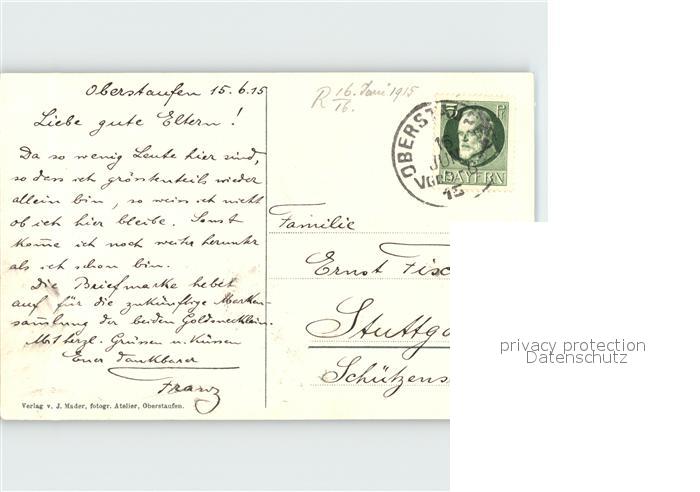 Oberstaufen 15.6.15
Liebe gute Eltern!
Da so wenig Leute hier sind,
so dass ich grösstenteils wieder
allein bin, so weiss ich nicht
ob ich hier bleibe. Sonst
komme ich noch weiter herunter
als ich schon bin.
Die Briefmarke hebet
auf für die zukünftige Marken-
sammlung der beiden
Mit herzl. Grüssen u. Küssen
Euer dankbarer
Franz
Verlag v. J. Mader, fotogr. Atelier, Oberstaufen.
R 16. Juni 1915
16.
5 Pf
BAYERN
OBERSTAU
16
JU
Vor
15
Familie
Ernst Fisc
Stuttga
Schützens
privacy protection
Datenschutz